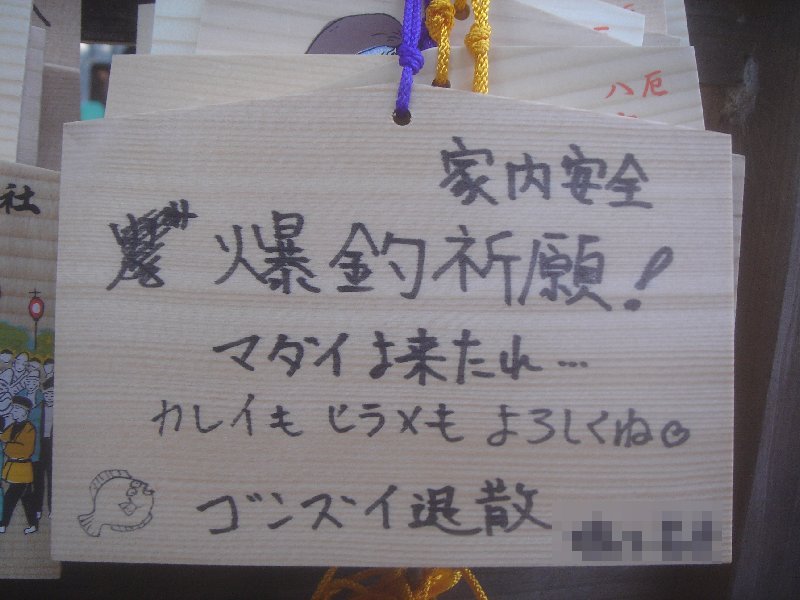 八厄
社
家内安全
爆釣祈願!
マダイよ来たれ…
カレイもヒラメもよろしくね
ゴンズイ退散